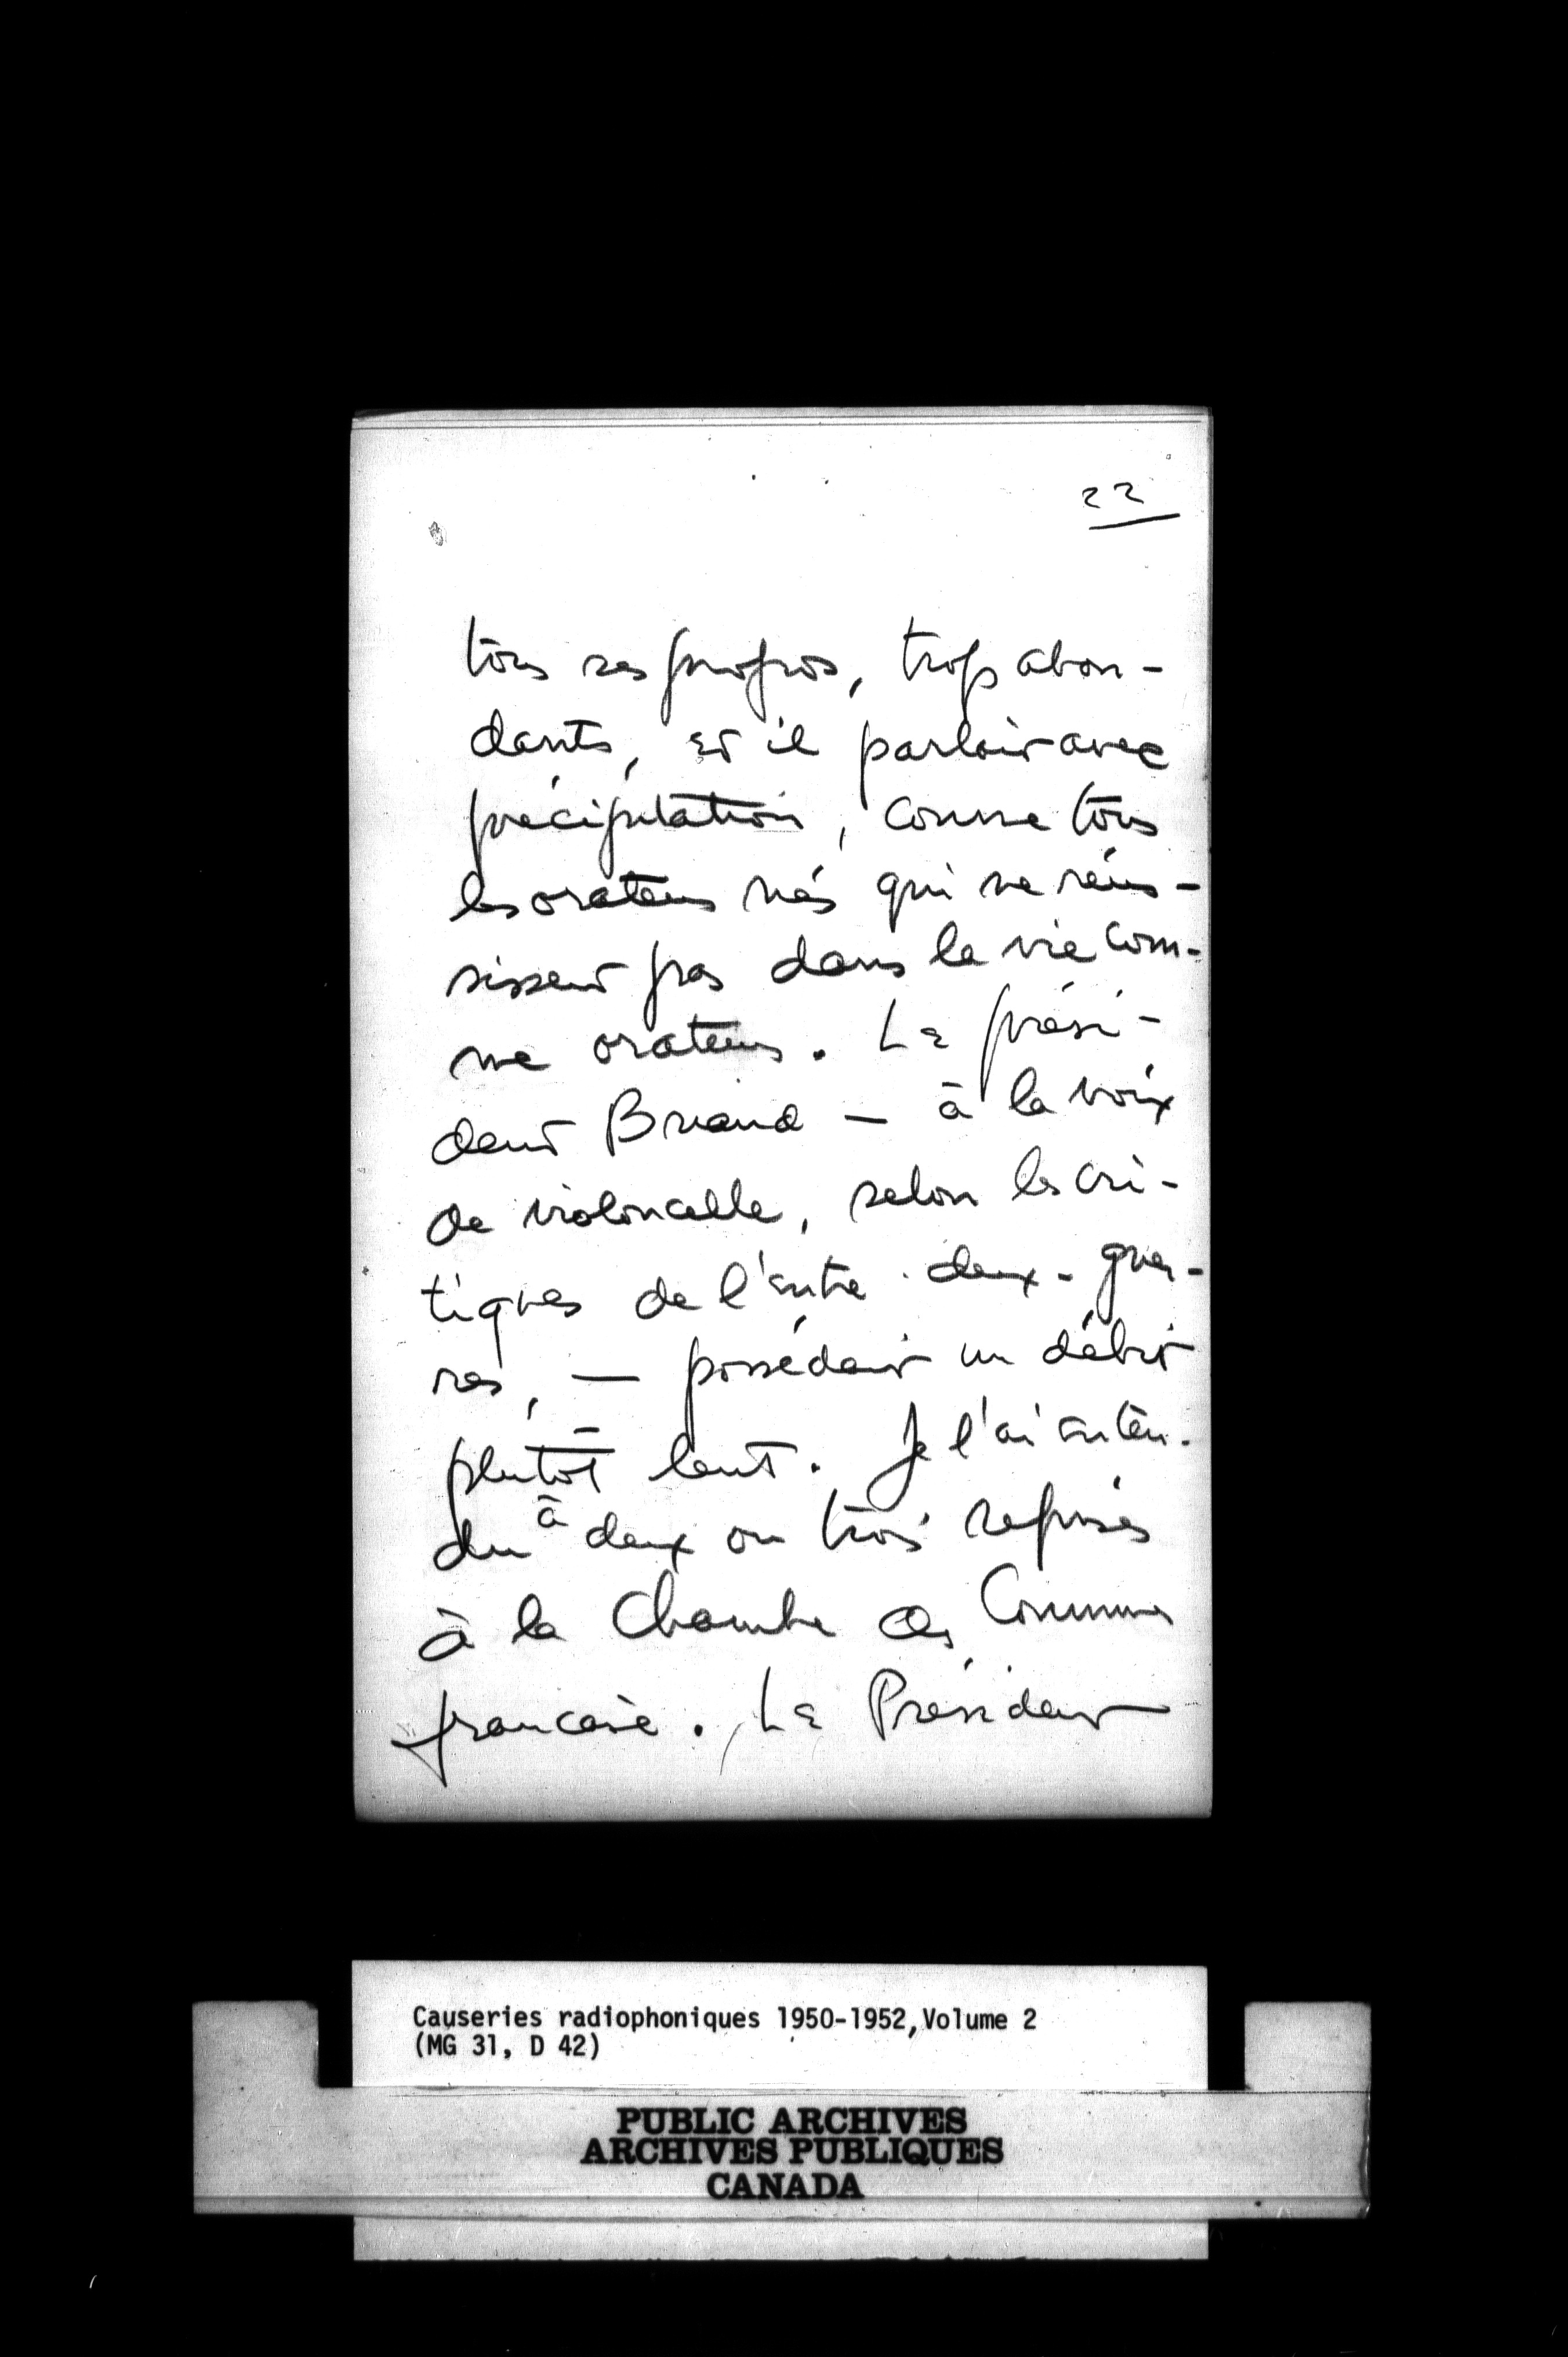 22
tous ses propos, trop abon-
dants, et il parlait avec
précipitation, comme tous
les orateurs nés qui ne réus-
sissent pas dans la vie com-
me orateurs. Le prési-
dent Briand — à la voix
de violoncelle, selon les cri-
tiques de l'entre-deux-guer-
res, — possédait un débit
plutôt lent. Je l'ai enten-
du à deux ou trois reprises
à la Chambre des Communes
française. Le Président
Causeries radiophoniques 1950-1952, Volume 2
(MG 31, D 42)
PUBLIC ARCHIVES
ARCHIVES PUBLIQUES
CANADA